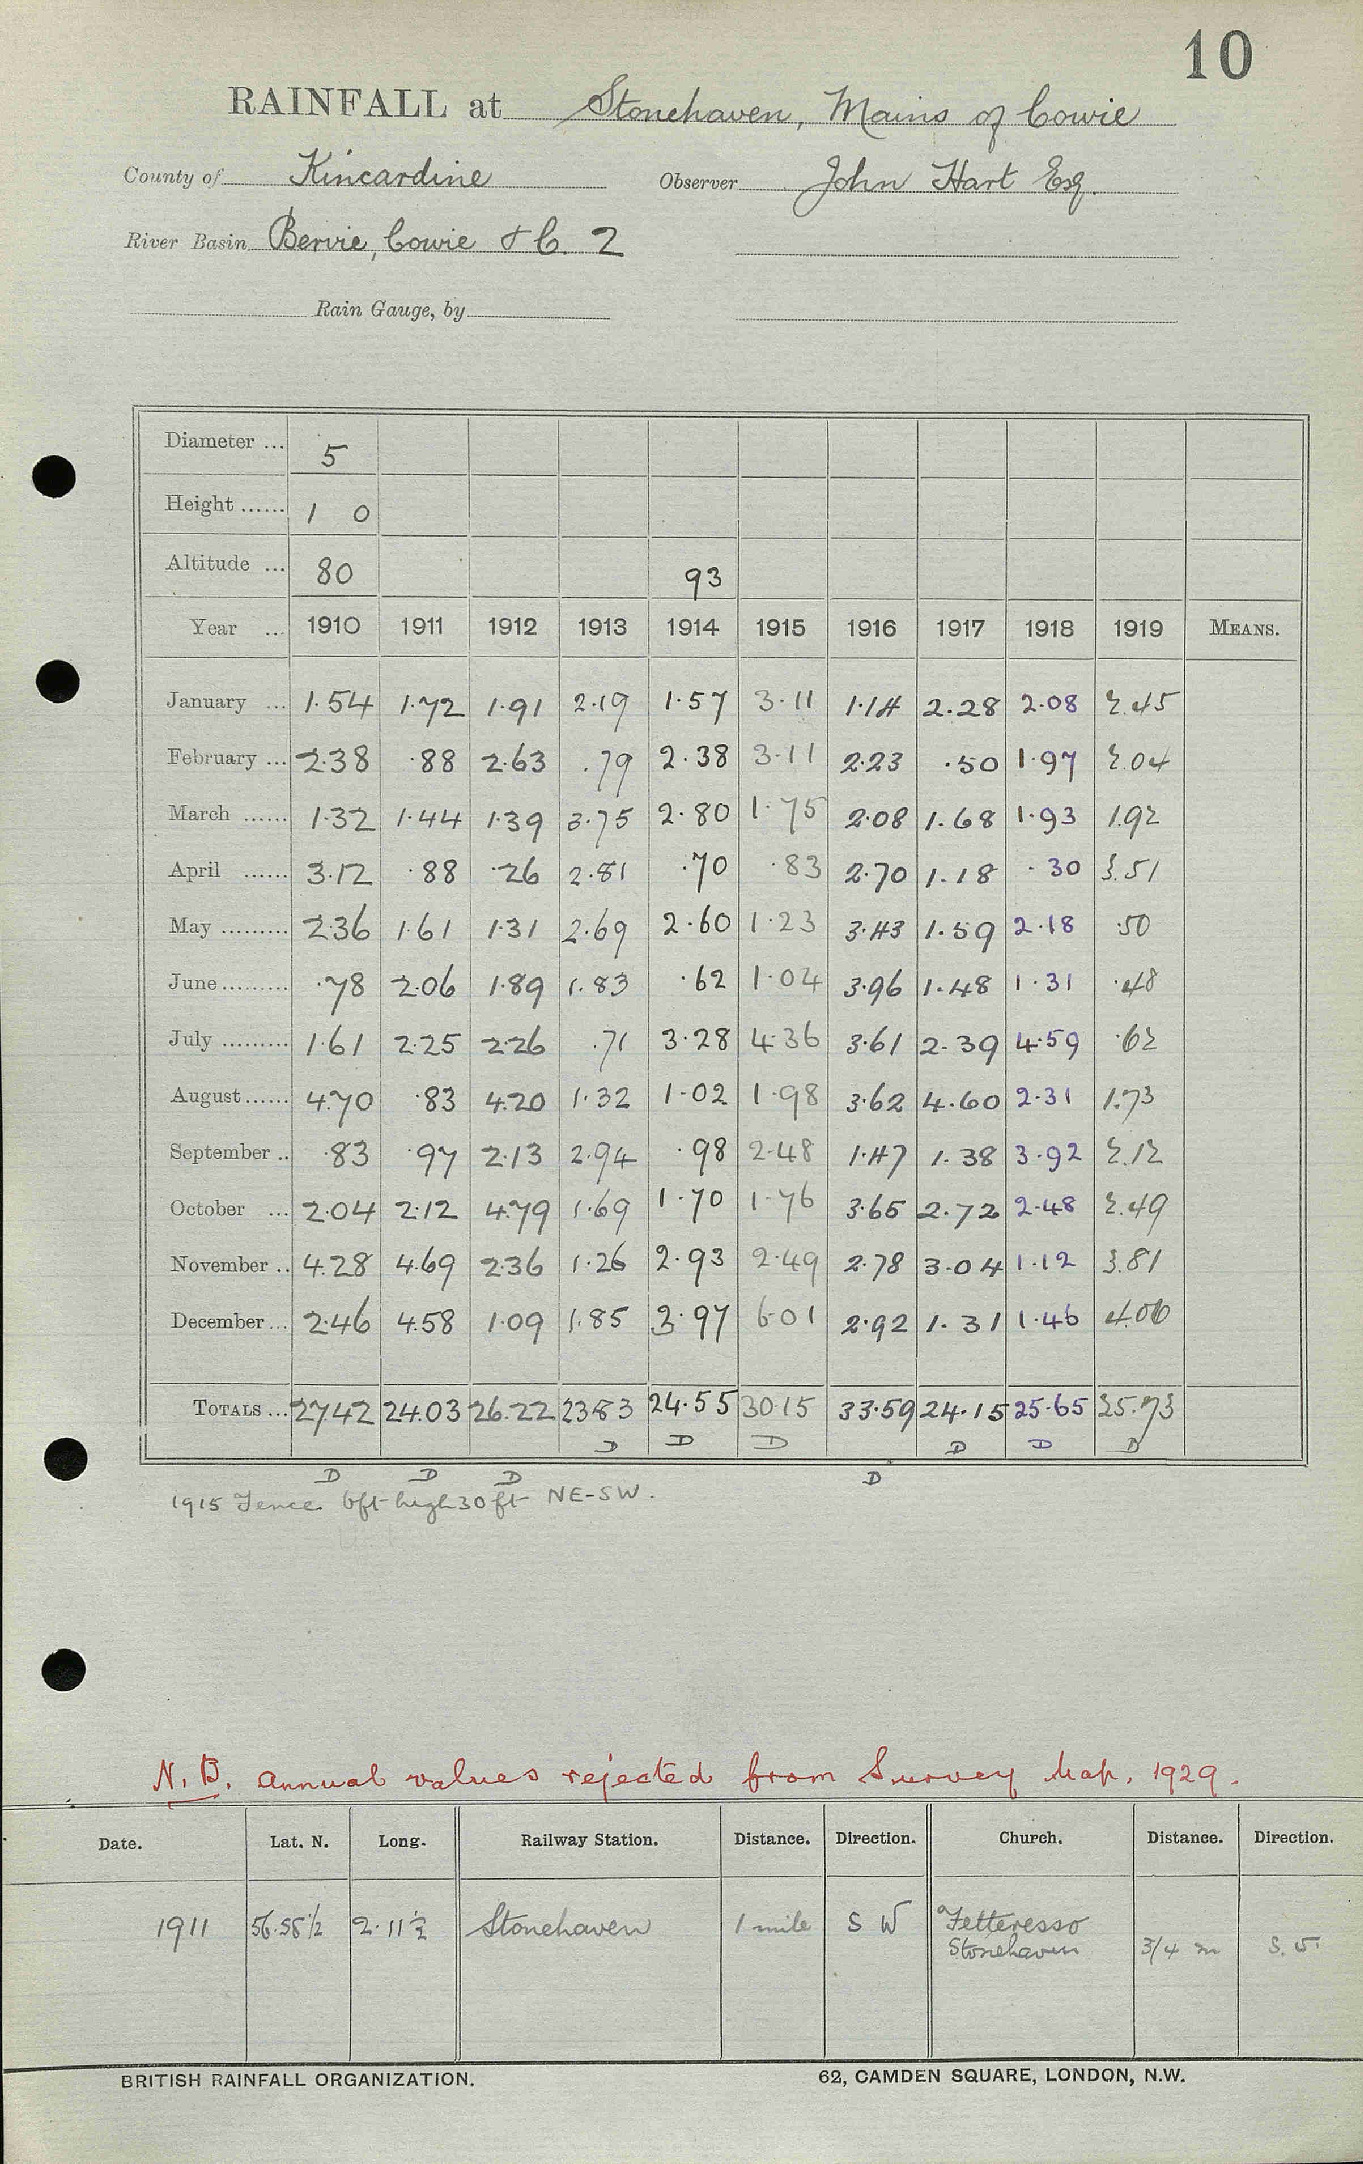 10
RAINFALL at Stonehaven, Mains of Cowie
County of Kincardine Observer John Hart Esq.
River Basin Bervie, Cowie & C. 2
Rain Gauge, by
Diameter ... 5
Height ...... 1 0
Altitude ... 80 93
Year ... 1910 1911 1912 1913 1914 1915 1916 1917 1918 1919 MEANS.
January ... 1.54 1.72 1.91 2.19 1.57 3.11 1.14 2.28 2.08 2.45
February ... 2.38 .88 2.63 .79 2.38 3.11 2.23 .50 1.97 2.04
March ...... 1.32 1.44 1.39 3.75 2.80 1.75 2.08 1.68 1.93 1.92
April ...... 3.12 .88 .26 2.81 .70 .83 2.70 1.18 .30 3.51
May ......... 2.36 1.61 1.31 2.69 2.60 1.23 3.43 1.59 2.18 .50
June ......... .78 2.06 1.89 1.83 .62 1.04 3.96 1.48 1.31 .48
July ......... 1.61 2.25 2.26 .71 3.28 4.36 3.61 2.39 4.59 .62
August ...... 4.70 .83 4.20 1.32 1.02 1.98 3.62 4.60 2.31 1.73
September .. .83 .97 2.13 2.94 .98 2.48 1.47 1.38 3.92 2.12
October ... 2.04 2.12 4.79 1.69 1.70 1.76 3.65 2.72 2.48 2.49
November .. 4.28 4.69 2.36 1.26 2.93 2.49 2.78 3.04 1.12 3.81
December ... 2.46 4.58 1.09 1.85 3.97 6.01 2.92 1.31 1.46 4.06
TOTALS ... 27.42 24.03 26.22 23.83 24.55 30.15 33.59 24.15 25.65 25.73
D D D D D D
D D D D
1915 Fence 6ft high 30 ft NE-SW.
N.B. Annual values rejected from Survey Map, 1929.
Date. Lat. N. Long. Railway Station. Distance. Direction. Church. Distance. Direction.
1911 56.58 1/2 2.11 1/2 Stonehaven 1 mile S W Fetteresso
Stonehaven 3/4 m S.W.
BRITISH RAINFALL ORGANIZATION. 62, CAMDEN SQUARE, LONDON, N.W.